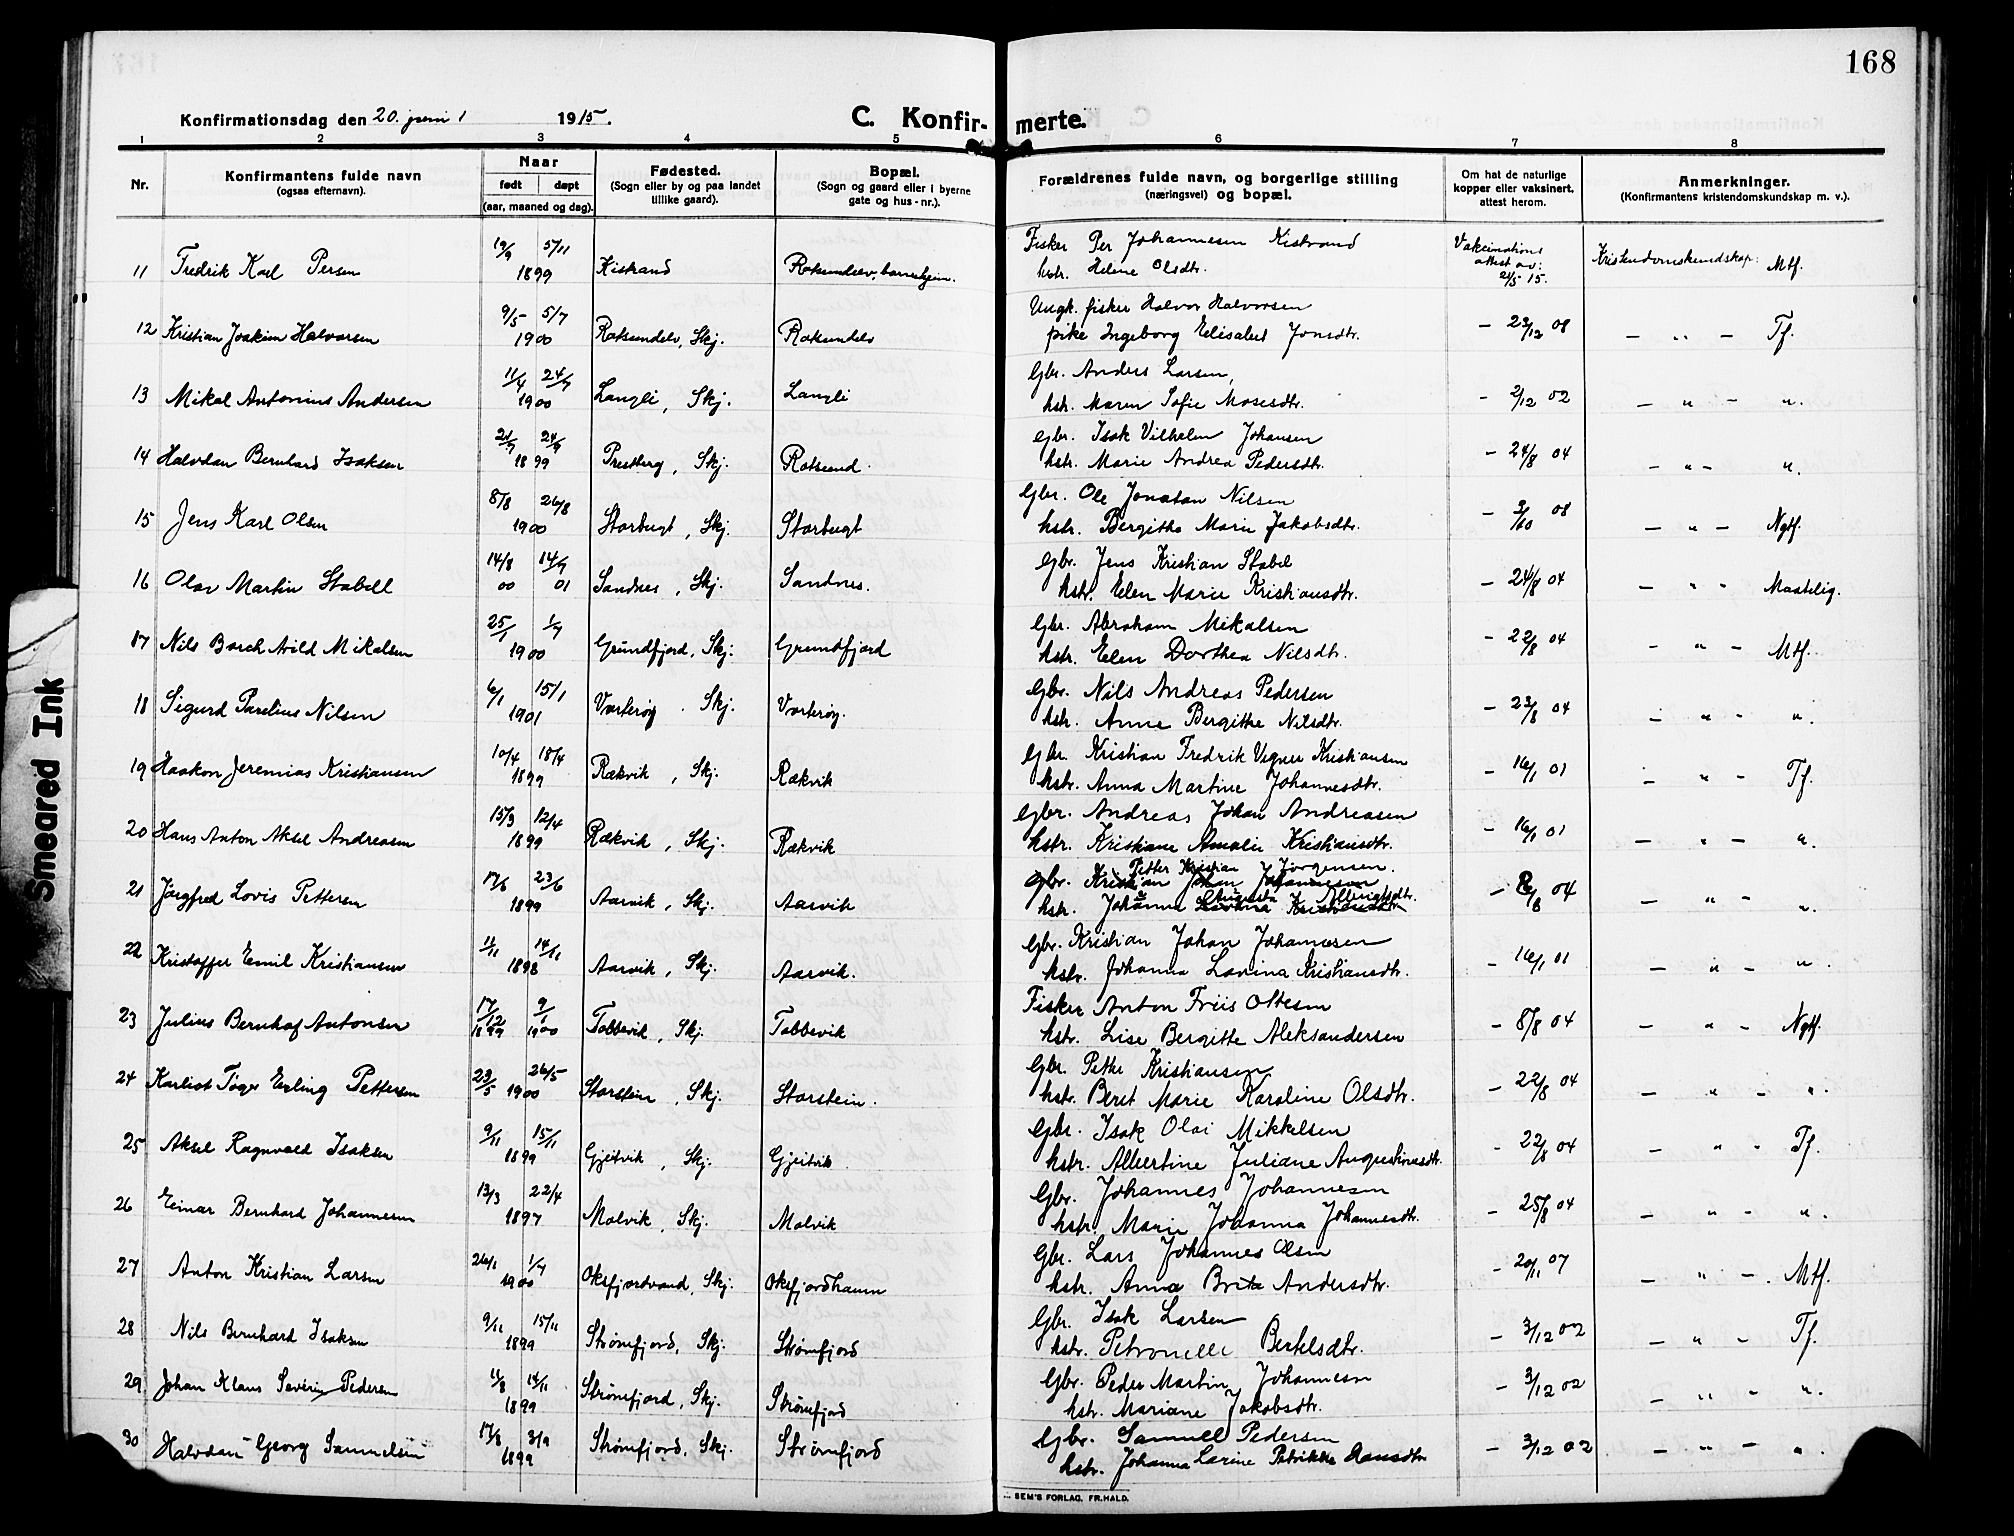 168
Konfirmationsdag den 20. juni 1915.
C. Konfirmerte.
1 2 3 4 5 6 7 8
Nr.
Konfirmantens fulde navn
(ogsaa efternavn).
Naar
født døpt
(aar, maaned og dag).
Fødested.
(Sogn eller by og paa landet
tillike gaard).
Bopæl.
(Sogn og gaard eller i byerne
gate og hus-nr.).
Forældrenes fulde navn, og borgerlige stilling
(næringsvei) og bopæl.
Om hat de naturlige
kopper eller vaksinert,
attest herom.
Anmerkninger.
(Konfirmantens kristendomskundskap m. v.).
11 Fredrik Karl Persen 19/9 5/11 1899 Kistrand Rotsundelv, barnehjem. Fisker Per Johannesen Kistrand
hstr. Helene Olsdtr. Vakcinations attest av: 21/5 15. Kristendomskundskap: Mtf.
12 Kristian Joakim Halvorsen 9/5 5/7 1900 Rotsundelv, Skj. Rotsundelv Ungk. fisker Halvor Halvorsen
pike Ingeborg Elisabet Jonsdtr. - 23/12 08 - " - Tf.
13 Mikal Antonius Andersen 11/4 24/7 1900 Langli, Skj. Langli Gbr. Anders Larsen,
hstr. Maren Sofie Mosesdtr. - 2/12 02 - " - ".
14 Halvdan Bernhard Isaksen 21/7 24/9 1899 Prestberg, Skj. Rotsund. Gbr. Isak Vilhelm Johansen
hstr. Marie Andrea Pedersdtr. - 24/8 04 - " - ".
15 Jens Karl Olsen 8/8 26/8 1900 Storbugt, Skj. Storbugt Gbr. Ole Jonatan Nilsen
hstr. Bergitte Marie Jakobsdtr. - 3/10 08 - " - Ngtf.
16 Olav Martin Stabell 14/8 00 14/7 01 Sandnes, Skj. Sandnes. Gbr. Jens Kristian Stabel
hstr. Elen Marie Kristiansdtr. - 24/8 04 - " - Maatelig.
17 Nils Borch Arild Mikalsen 25/1 1/7 1900 Grundfjord, Skj. Grundfjord Gbr. Abraham Mikalsen
hstr. Elen Dorthea Nilsdtr. - 22/8 04 - " - Mtf.
18 Sigurd Parelius Nilsen 6/1 15/1 1901 Vorterøy. Skj. Vorterøy. Gbr. Nils Andreas Pedersen
hstr. Anne Bergitte Nilsdtr. - 23/8 04 - " - ".
19 Haakon Jeremias Kristiansen 10/4 18/4 1899 Rækvik, Skj. Rækvik Gbr. Kristian Fredrik Vigner Kristiansen
hstr. Anna Martine Johannesdtr. - 16/1 01 - " - Tf.
20 Hans Anton Aksel Andreasen 15/3 12/4 1899 Rækvik, Skj. Rækvik Gbr. Andreas Johan Andreasen
hstr. Kristiane Amalie Kristiansdtr. - 16/1 01 - " - ".
21 Jørgfred Lovis Pettersen 17/6 23/6 1899 Aarvik, Skj. Aarvik Gbr. Petter Kristian Jørgensen. Kristian Johan Johannesen
hstr. Johanna Augusta Albrigtsdtr. Lovina Kristiansdtr - 8/8 04 - " - ".
22 Kristoffer Emil Kristiansen 11/11 14/11 1898 Aarvik, Skj. Aarvik. Gbr. Kristian Johan Johannesen
hstr. Johanna Lovina Kristiansdtr. - 16/1 01 - " - ".
23 Julius Bernhof Antonsen 17/12 1899 9/1 1900 Tobbevik, Skj. Tobbevik Fisker Anton Friis Ottesen
hstr. Lise Bergitte Aleksandersen - 8/8 04 - " - Ngtf.
24 Karliot Tøger Erling Pettersen 23/5 26/5 1900 Storstein, Skj. Storstein. Gbr. Petter Kristiansen
hstr. Beret Marie Karoline Olsdtr. - 22/8 04 - " - ".
25 Aksel Ragnvald Isaksen 9/11 15/11 1899 Gjeitvik, Skj. Gjeitvik Gbr. Isak Olai Mikkelsen
hstr. Albertine Juliane Augustinusdtr. - 22/8 04 - " - Tf.
26 Einar Bernhard Johannesen 13/3 22/4 1897 Molvik, Skj. Molvik Gbr. Johannes Johannesen
hstr. Marie Johanna Johannesdtr. - 25/8 04 - " - ".
27 Anton Kristian Larsen 26/1 1/7 1900 Oksfjordvand, Skj. Oksfjordhavn Gbr. Lars Johannes Olsen
hstr. Anna Brita Andersdtr. - 20/11 07 - " - Mtf.
28 Nils Bernhard Isaksen 9/11 15/11 1899 Strømfjord, Skj. Strømfjord Gbr. Isak Larsen
hstr. Petronelle Bertelsdtr. - 3/12 02 - " - Tf.
29 Johan Klaus Severin Pedersen 11/8 14/11 1899 Strømfjord, Skj. Strømfjord Gbr. Peder Martin Johannesen
hstr. Mariane Jakobsdtr. - 3/12 02 - " - ".
30 Halvdan Georg Samuelsen 17/8 3/9 1899 Strømfjord, Skj. Strømfjord Gbr. Samuel Pedersen
hstr. Johanna Larine Petrikke Hansdtr - 3/12 02 - " - ".
SEM'S FORLAG, FR.HALD.
Smeared Ink